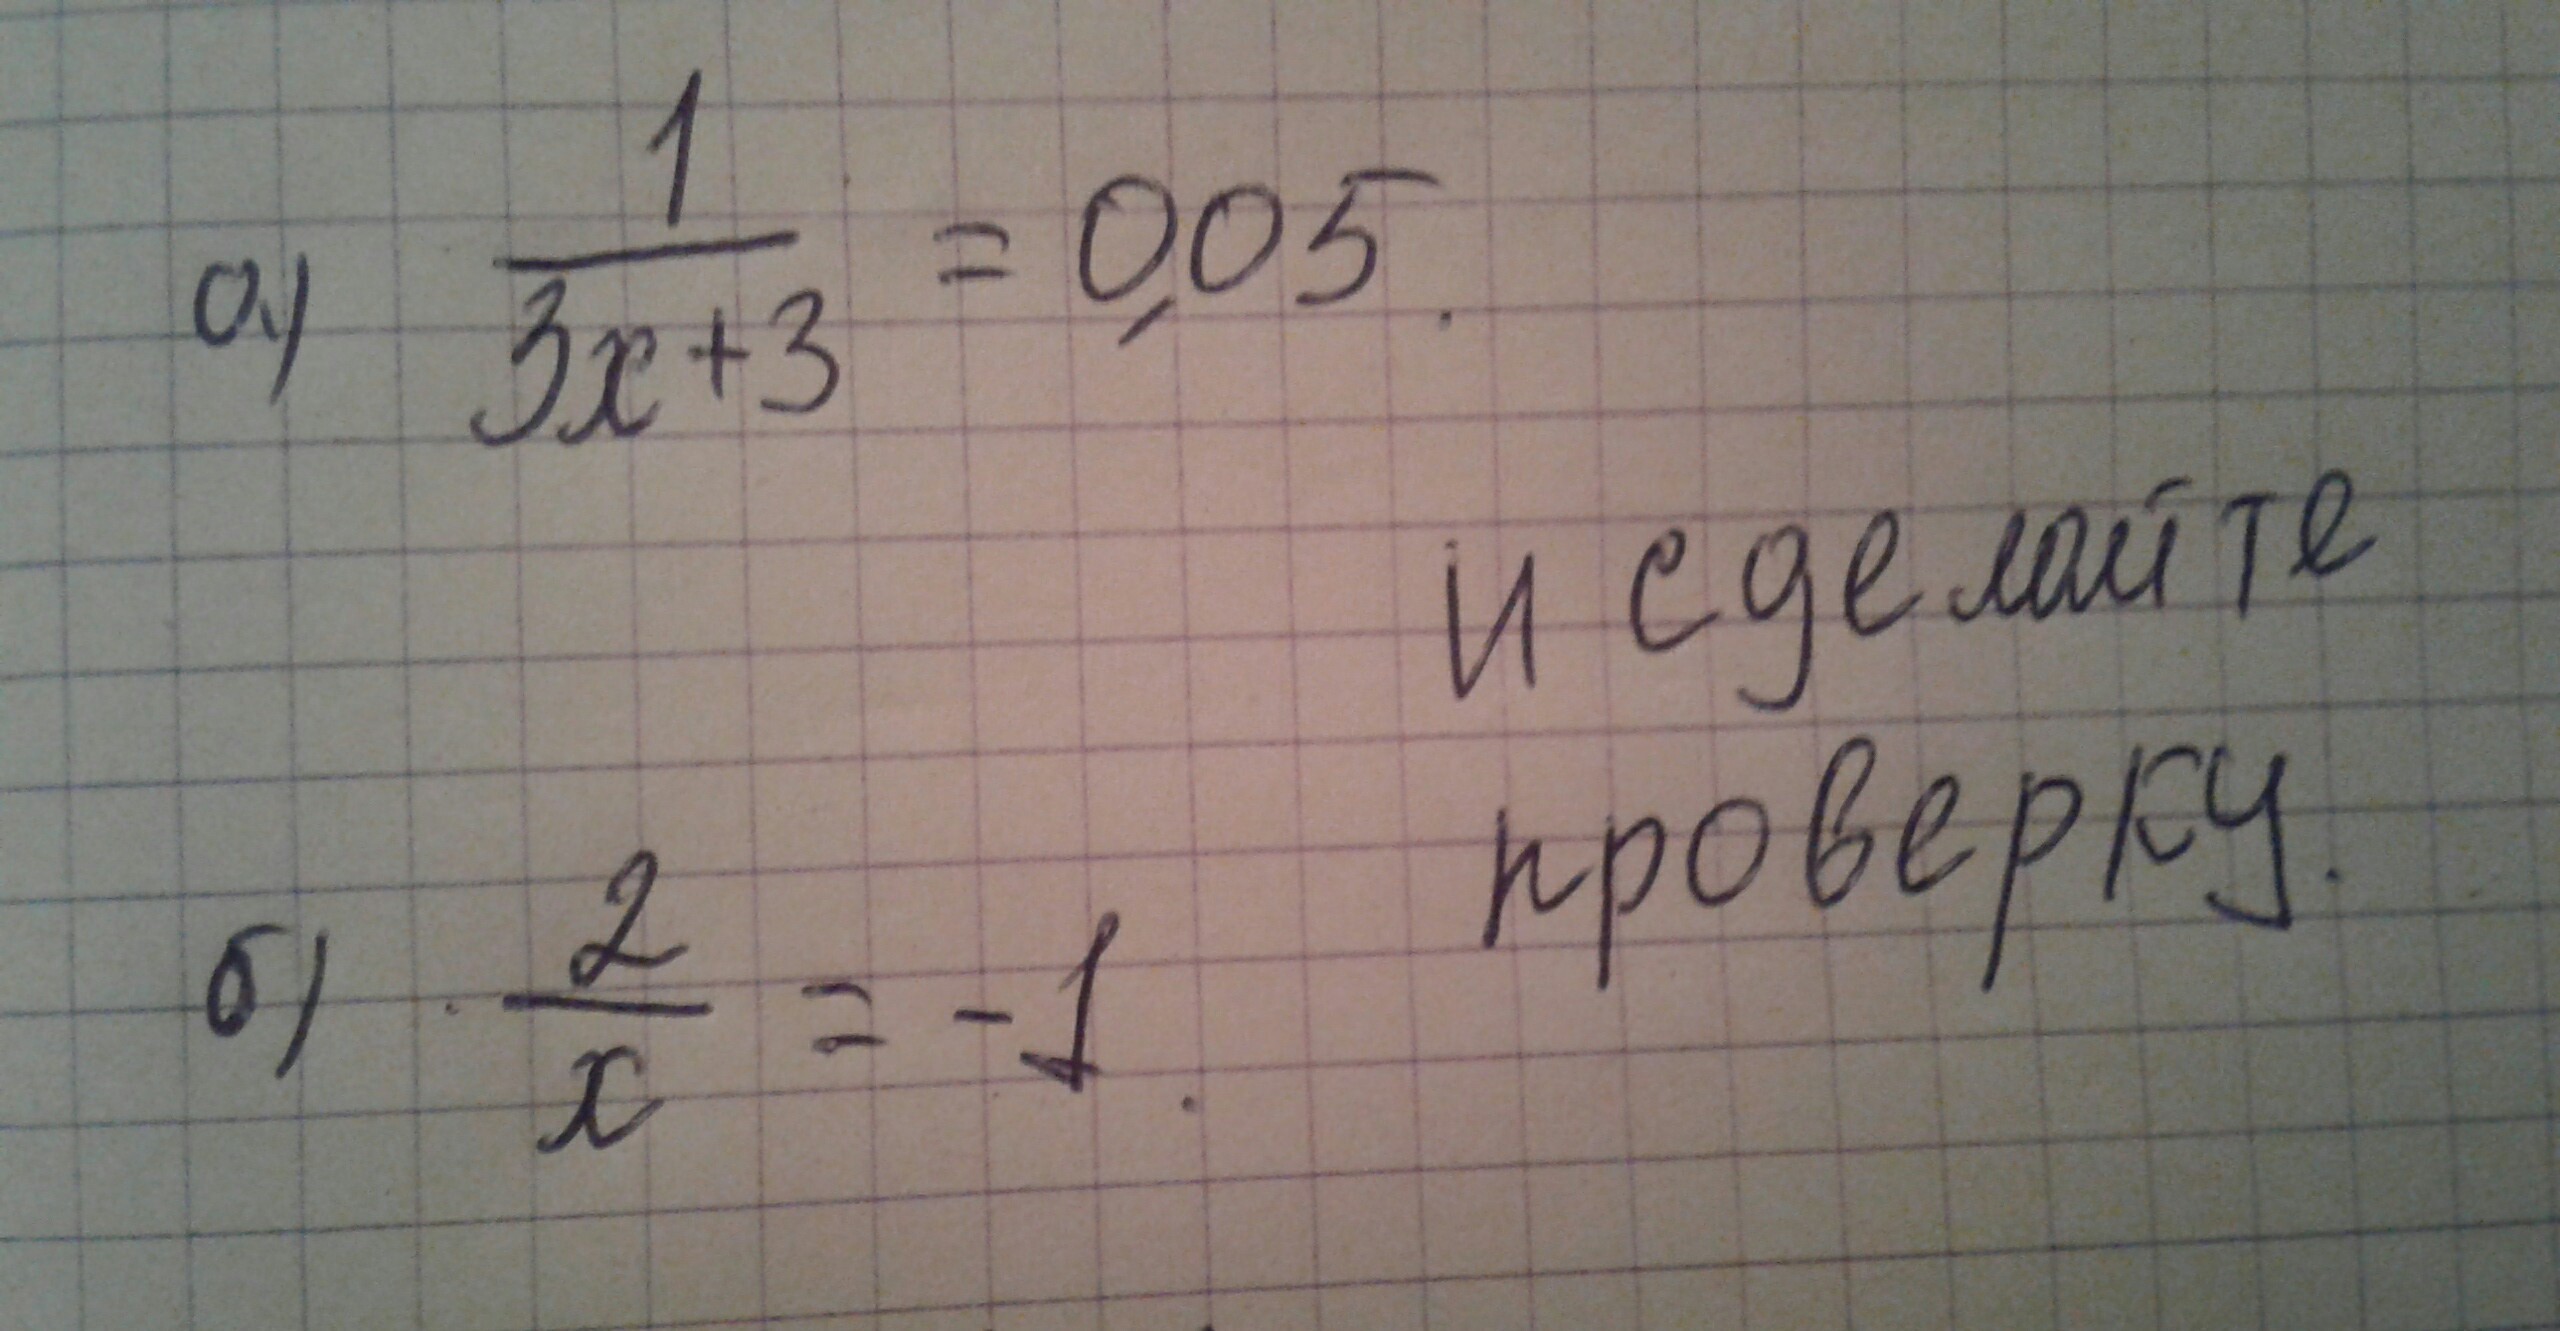 а) 1/(3x+3) = 0,05.
и сделайте
проверку.
б) 2/x = -1.